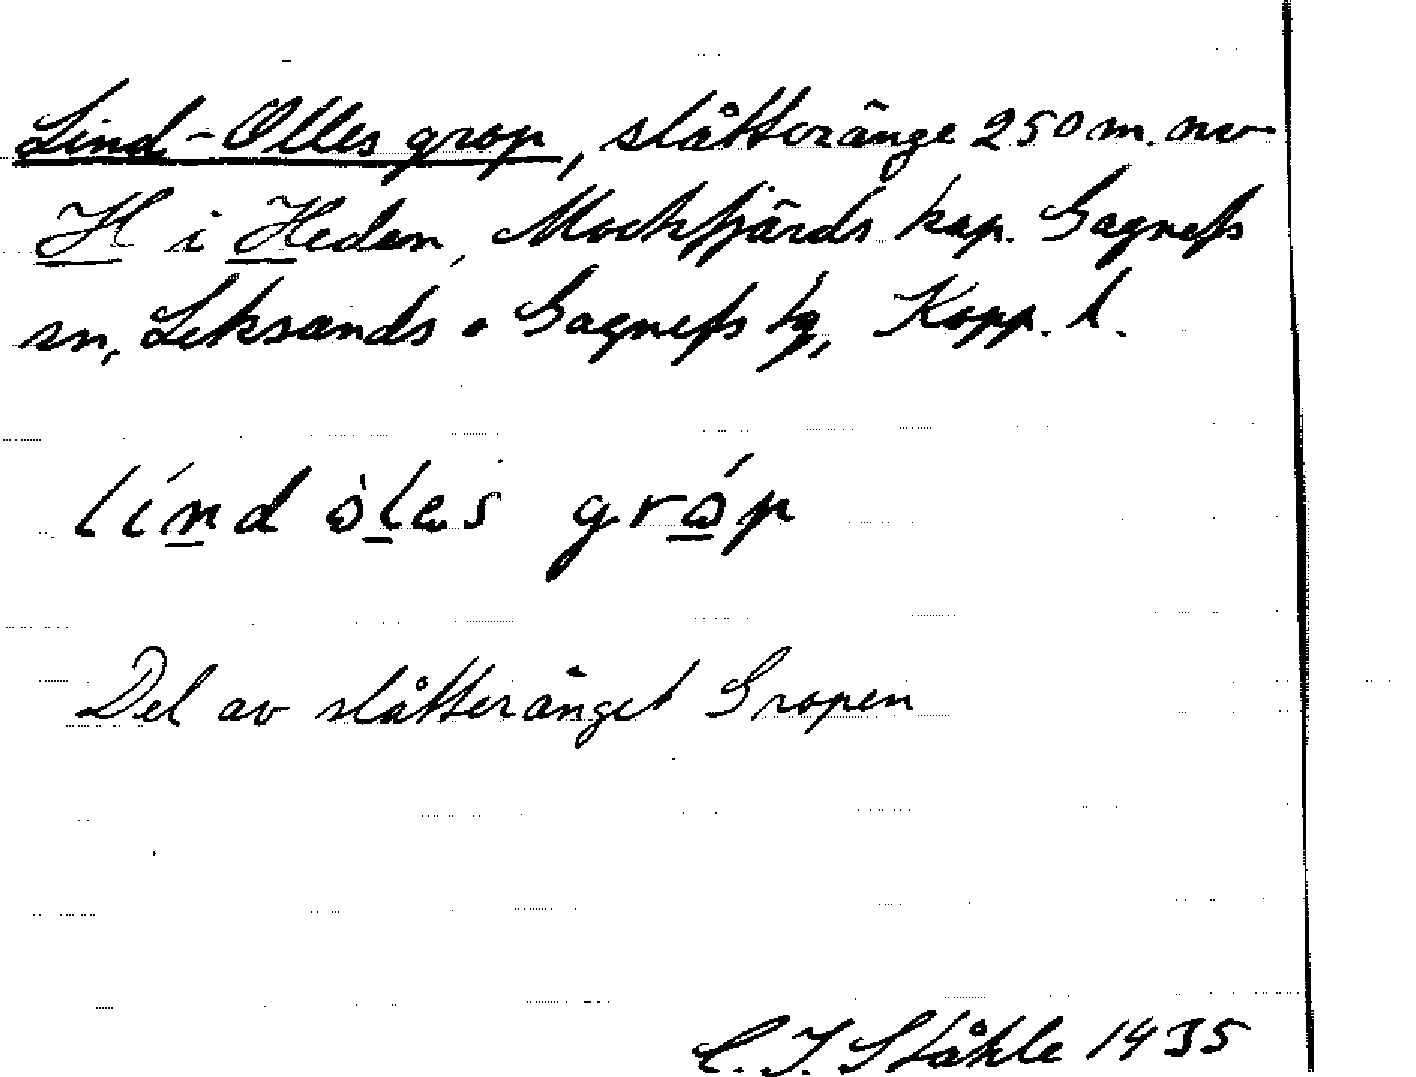 Lind-Olles grop, slåtteränge 250 m. nv
H i Heden, Mockfjärds kap. Gagnefs
sn, Leksands o Gagnefs tg, Kopp. l.
línd òles gróp
Del av slåtteränget Gropen
C. I. Ståhle 1935